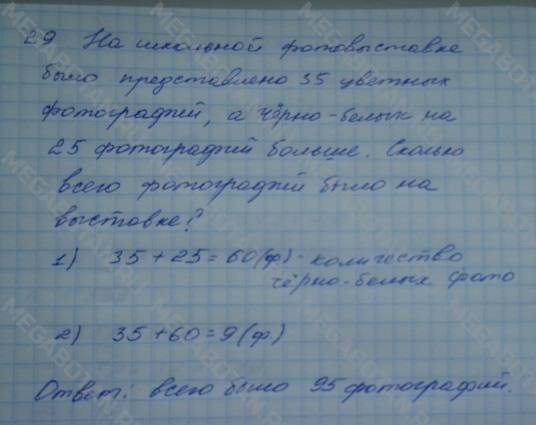 29 На школьной фотовыставке
было представлено 35 цветных
фотографий, а чёрно-белых на
25 фотографий больше. Сколько
всего фотографий было на
выставке?
1) 35 + 25 = 60 (ф) - количество
чёрно-белых фото
2) 35 + 60 = 9 (ф.)
Ответ: всего было 95 фотографий.